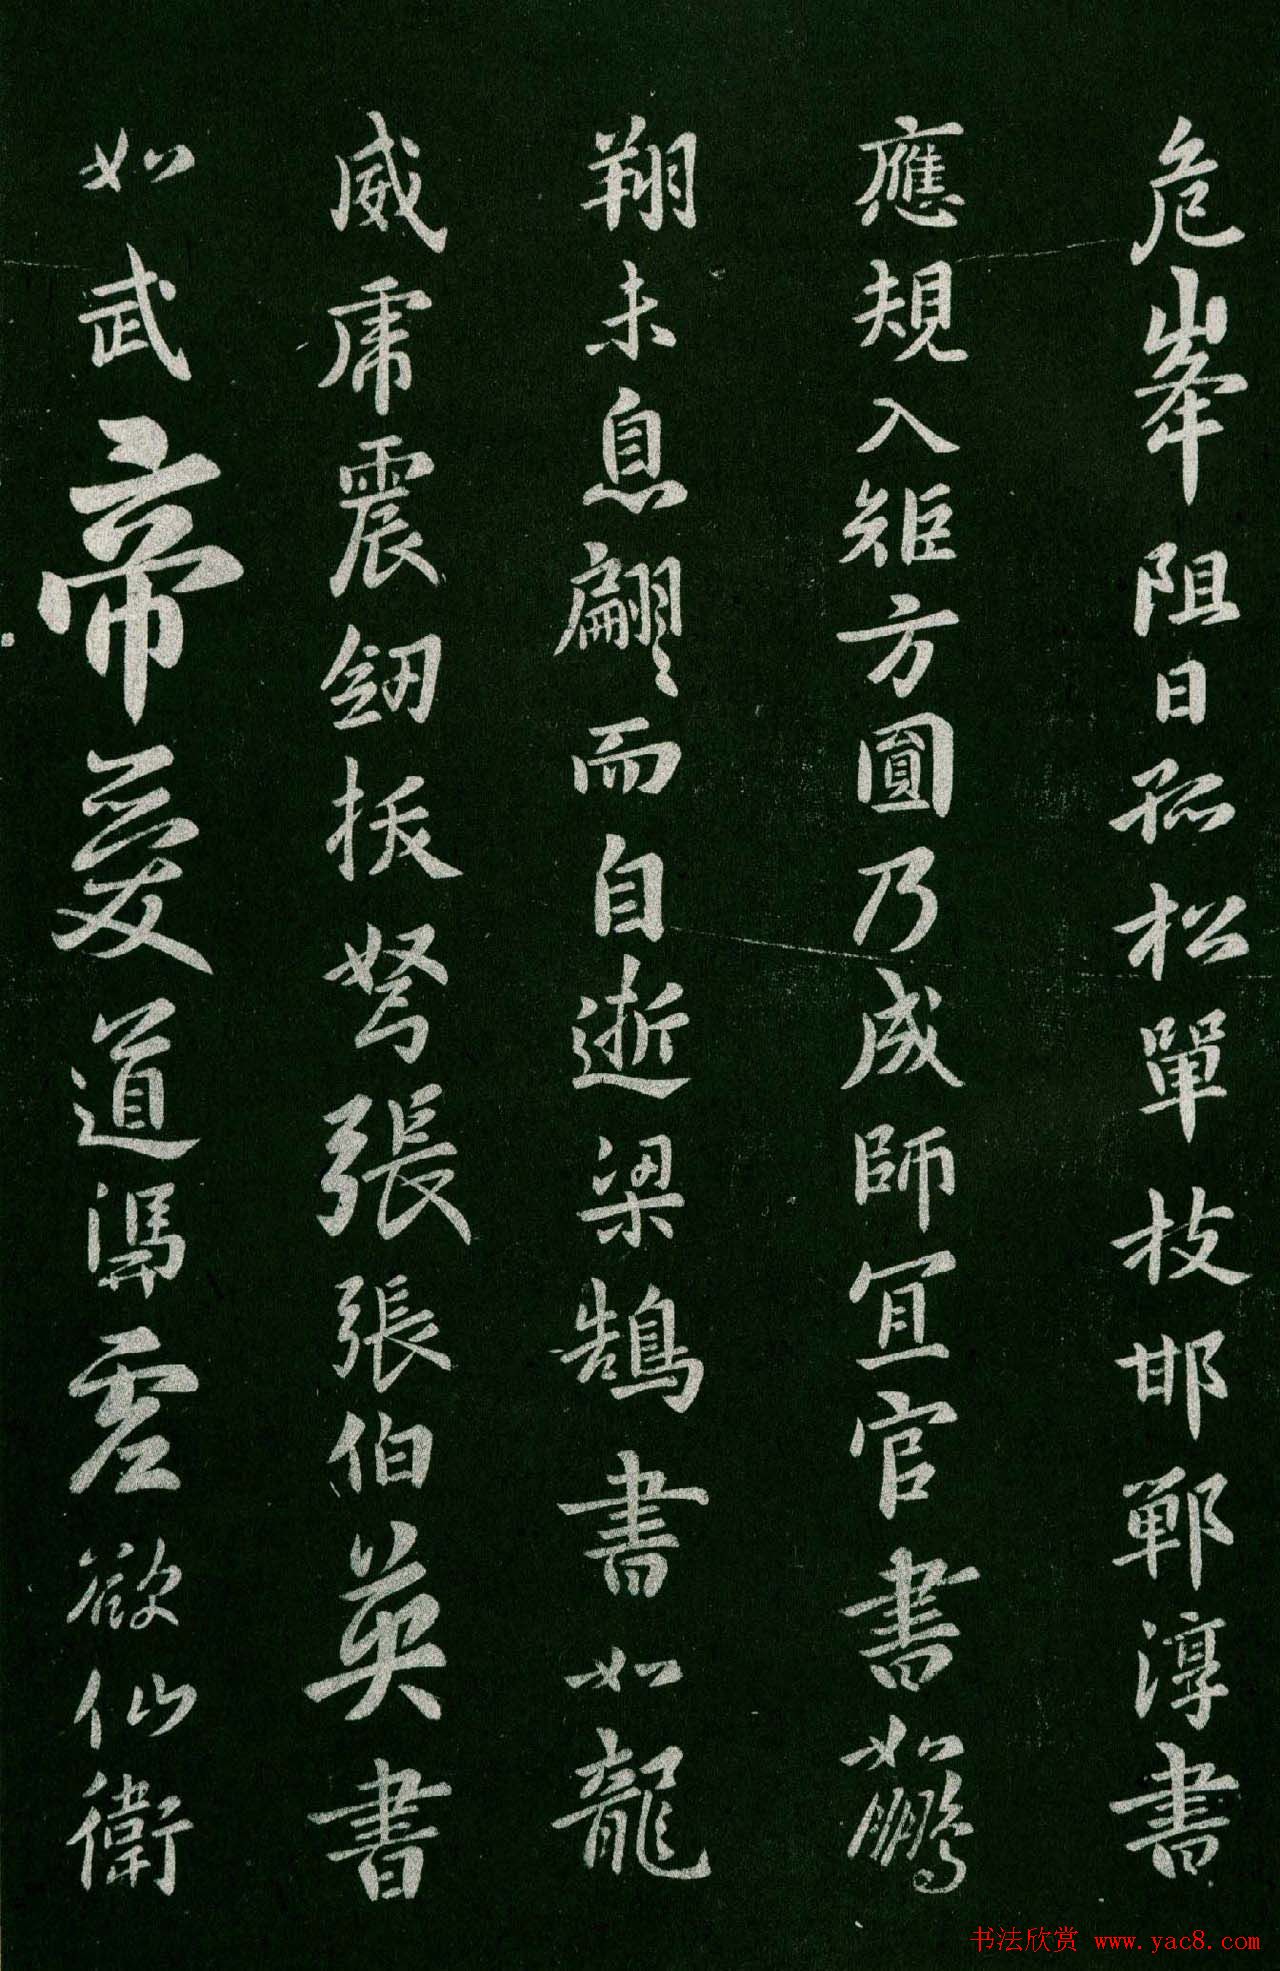 危峯阻日孤松單枝邯鄲淳書
應規入矩方圓乃成師宜官書如鵬
翔未息翩〻而自逝梁鵠書如龍
威虎震劒拔弩張張伯英書
如武帝愛道憑虛欲仙衛
书法欣赏 www.yac8.com